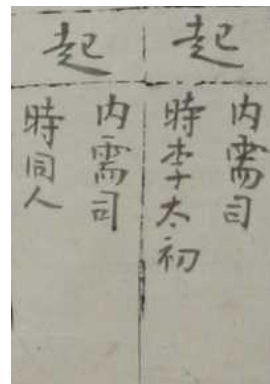 起
内需司
時李太初
起
内需司
時同人